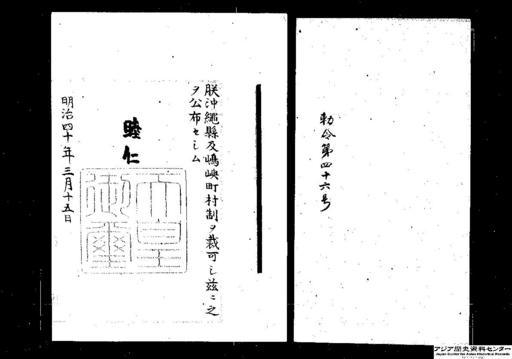 勅令第四十六号
朕沖繩縣及嶋嶼町村制ヲ裁可シ茲ニ之
ヲ公布セシム
睦仁
天皇
御璽
明治四十年三月十五日
アジア歴史資料センター
Japan Center for Asian Historical Records